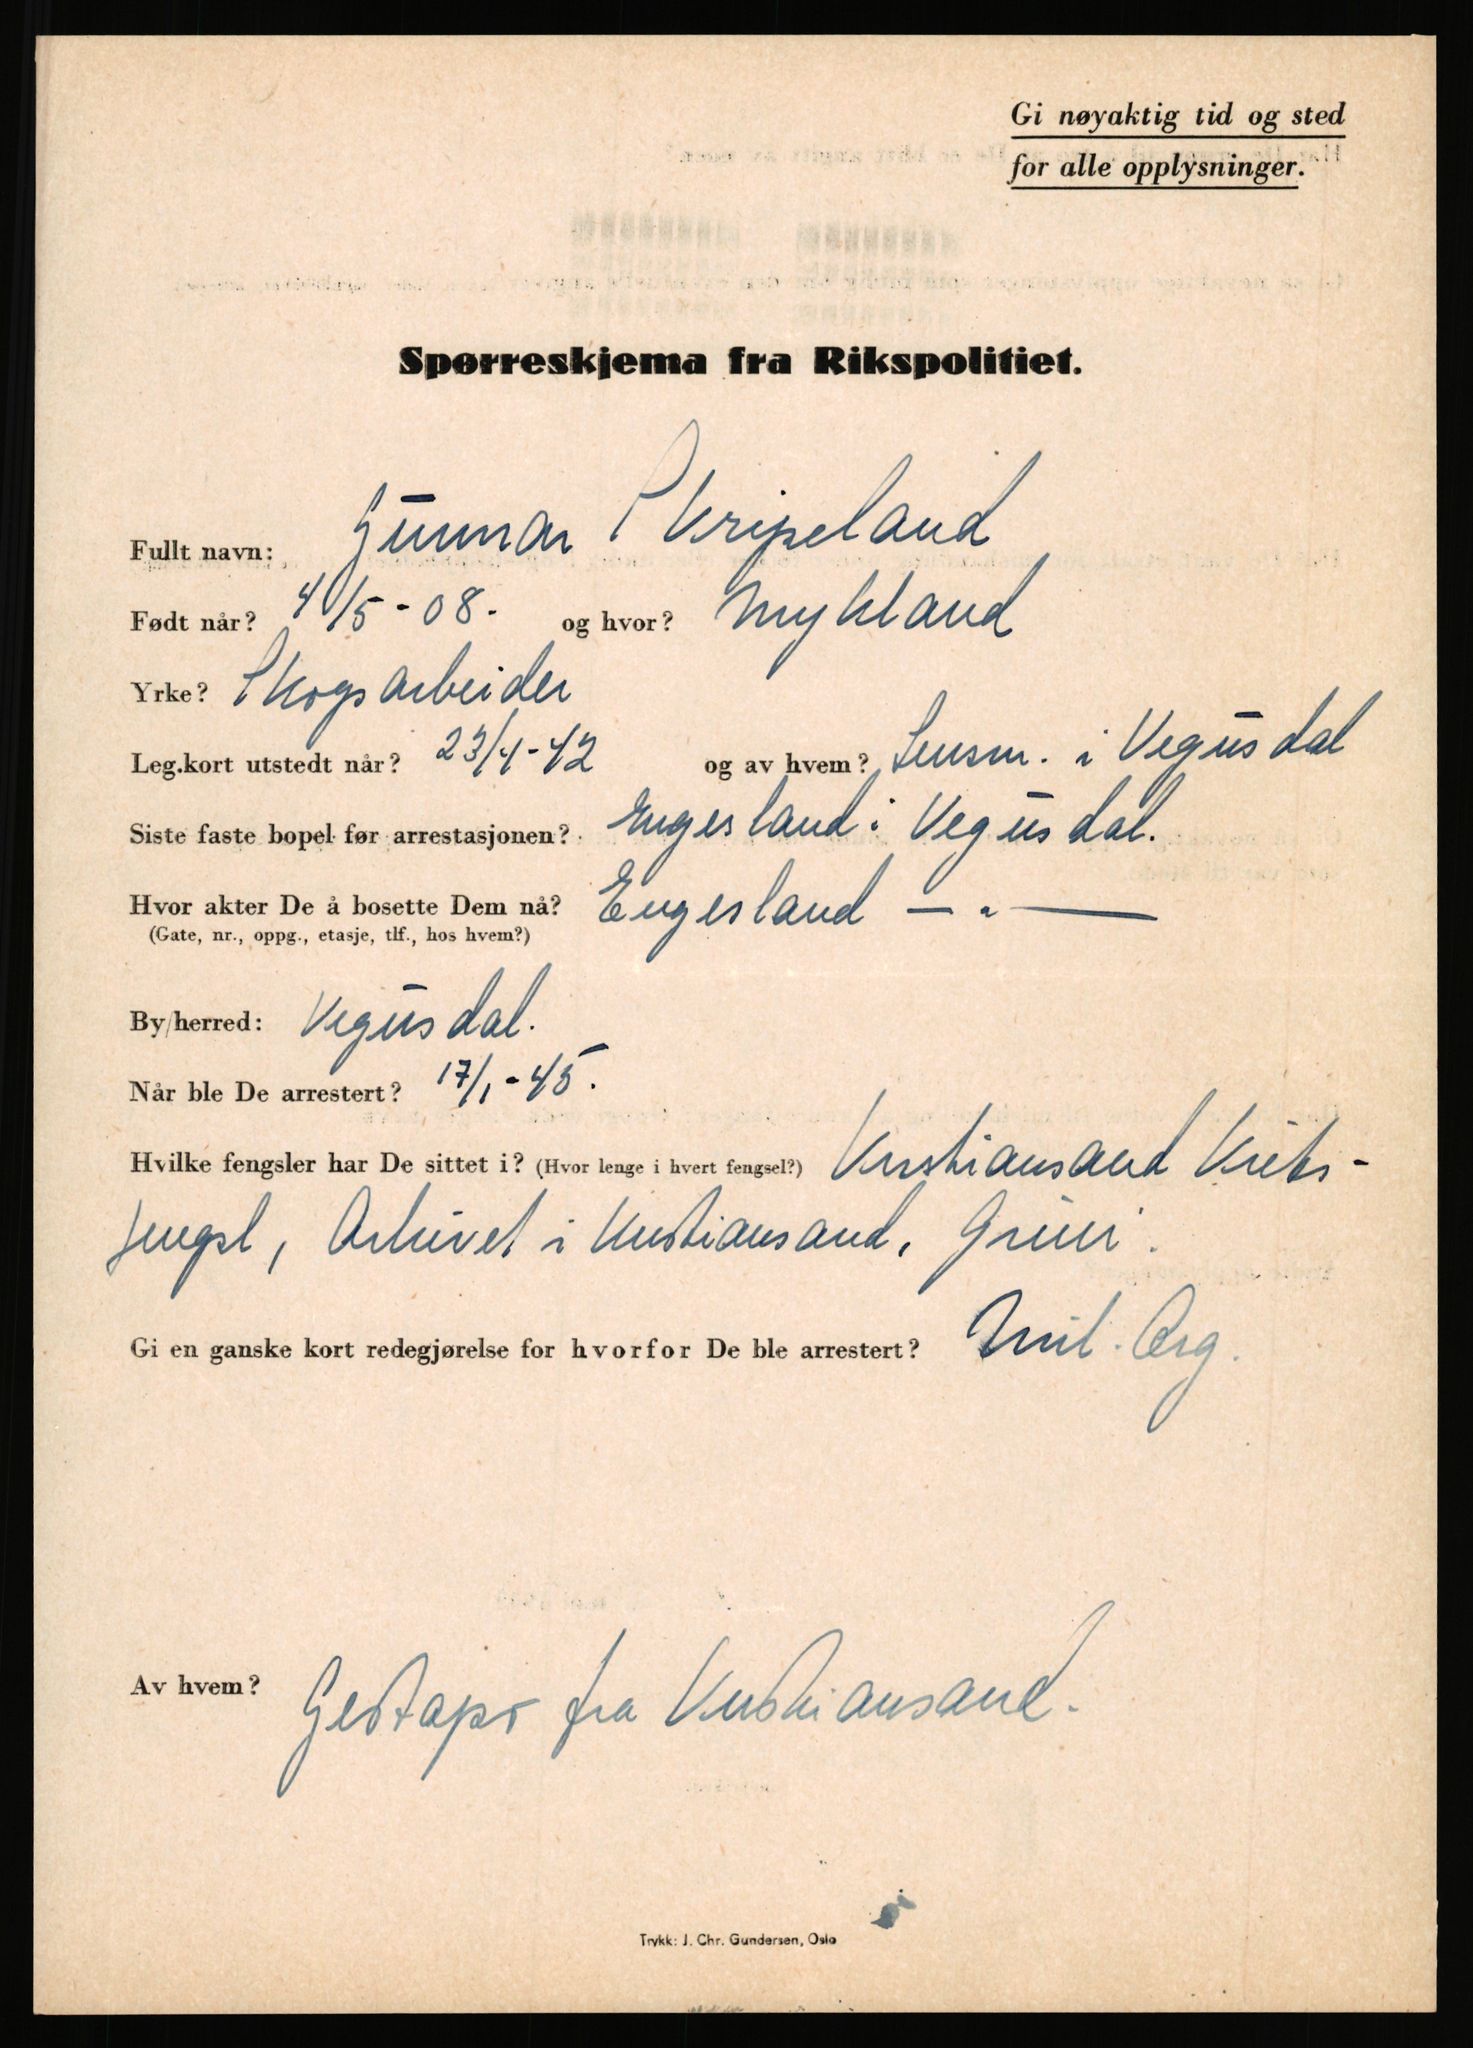 Gi nøyaktig tid og sted
for alle opplysninger.
Spørreskjema fra Rikspolitiet.
Fullt navn: Gunnar Skripeland
Født når? 4/5-08. og hvor? Mykland
Yrke? Skogsarbeider
Leg.kort utstedt når? 23/4-42 og av hvem? Lensm. i Vegusdal
Siste faste bopel før arrestasjonen? Engesland i Vegusdal.
Hvor akter De å bosette Dem nå? Engesland — " —
(Gate, nr., oppg., etasje, tlf., hos hvem?)
By/herred: Vegusdal.
Når ble De arrestert? 17/1-45.
Hvilke fengsler har De sittet i? (Hvor lenge i hvert fengsel?) Kristiansand Krets-
fengsl, Arkivet i Kristiansand, Grini.
Gi en ganske kort redegjørelse for hvorfor De ble arrestert? Mil. Org.
Av hvem? Gestapo fra Kristiansand.
Trykk: J. Chr. Gundersen, Oslo